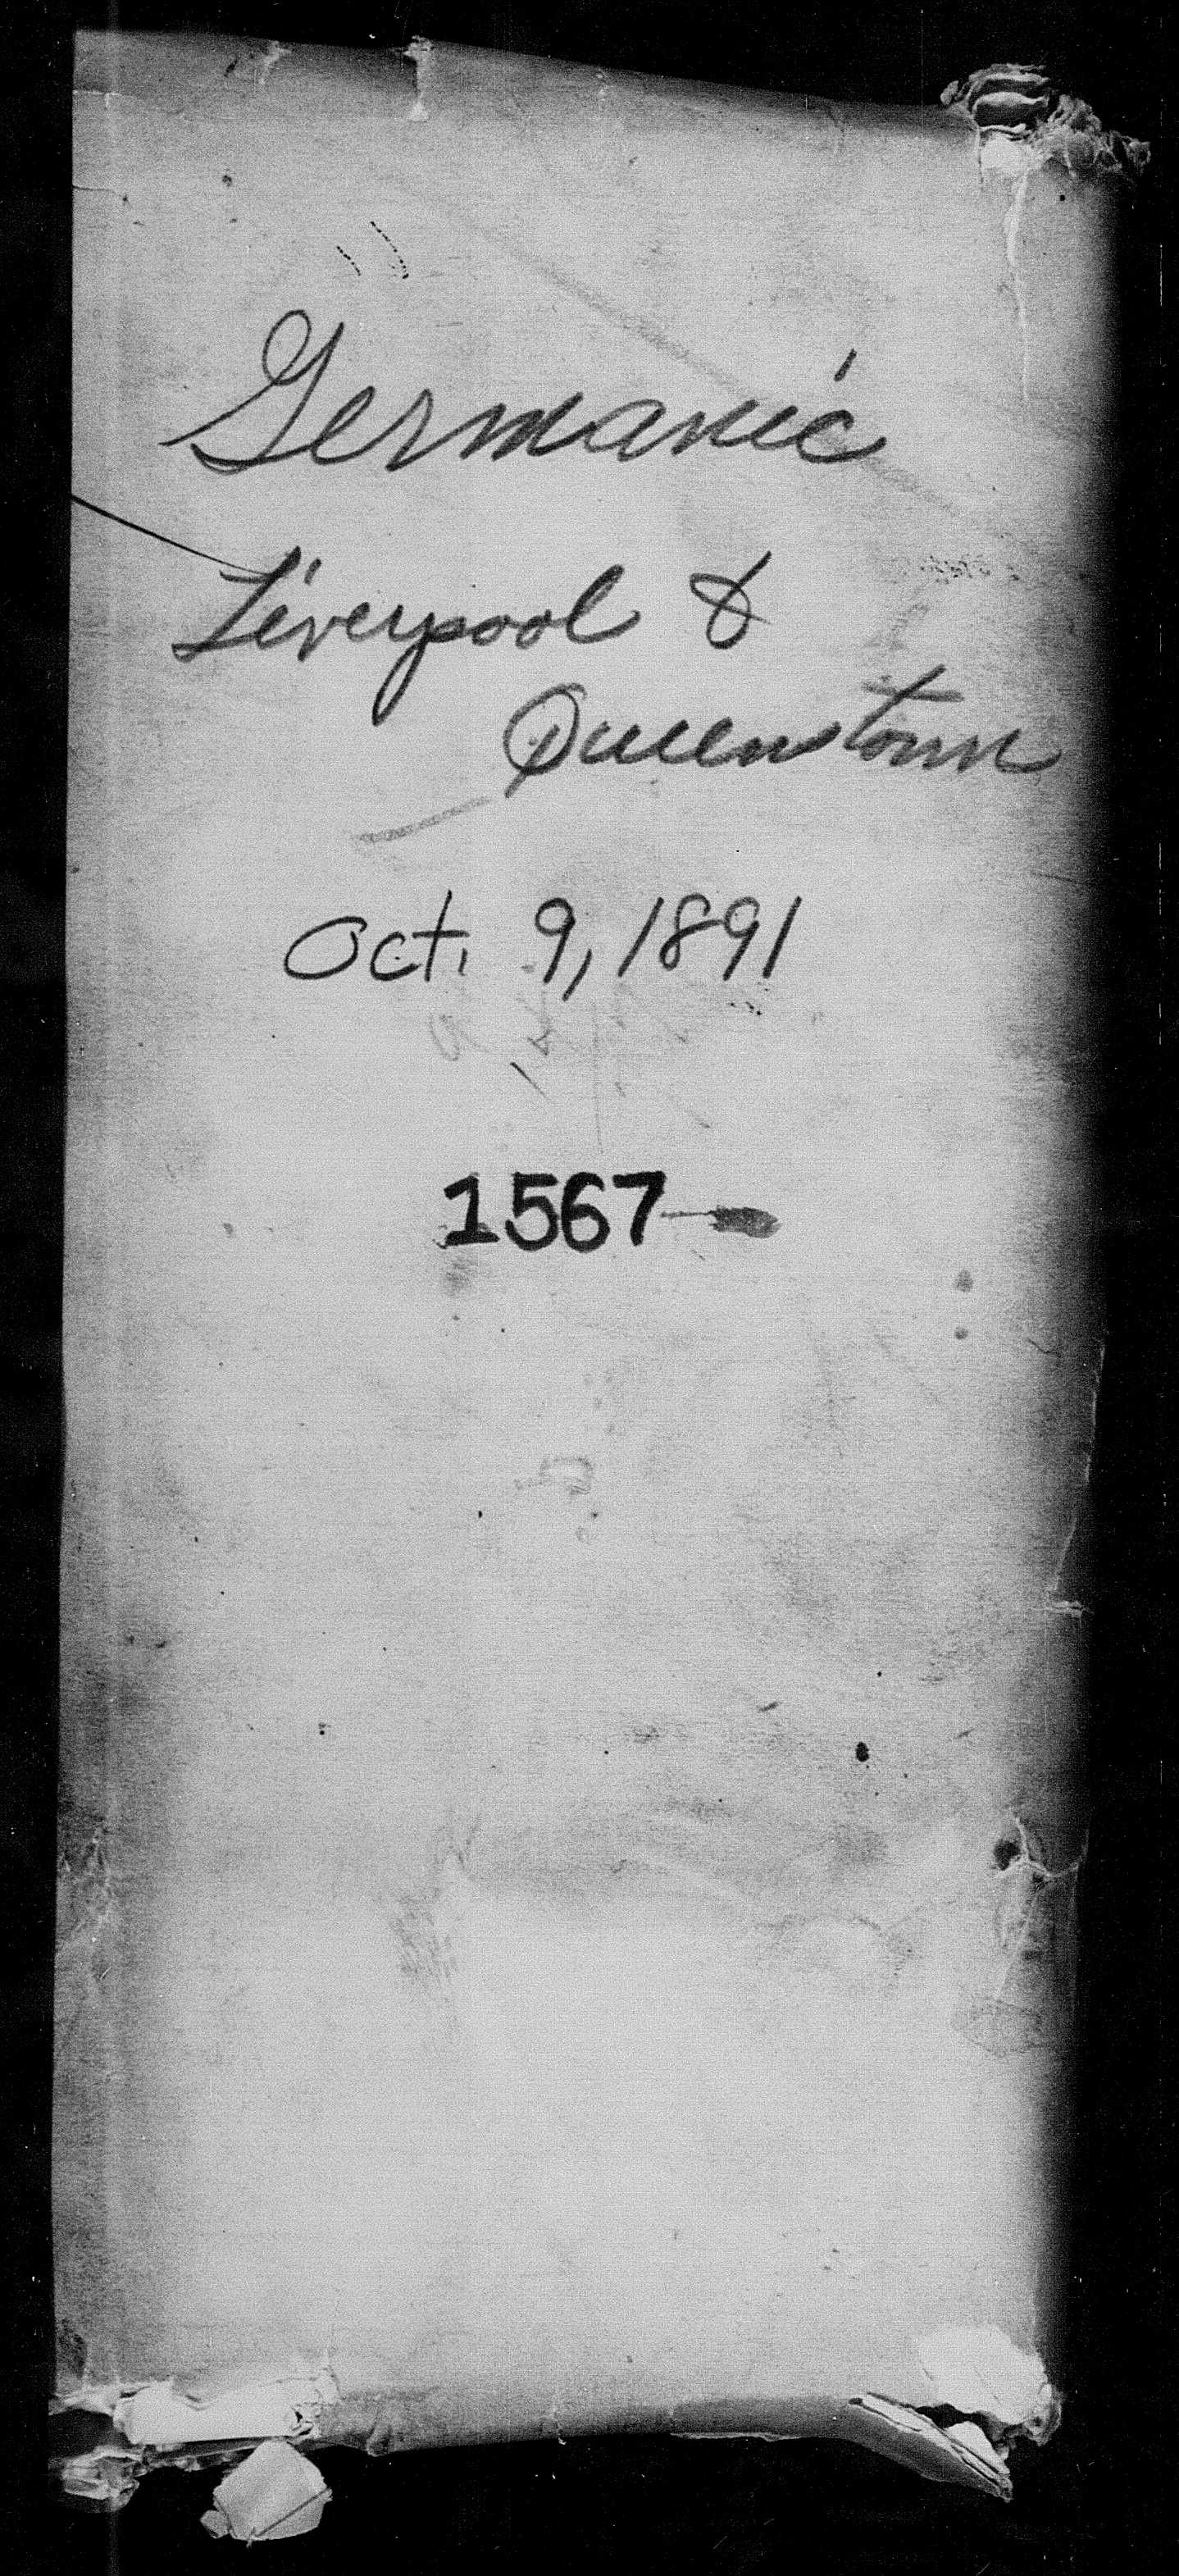 Germanic
Liverpool &
Queenstown
Oct. 9, 1891
1567